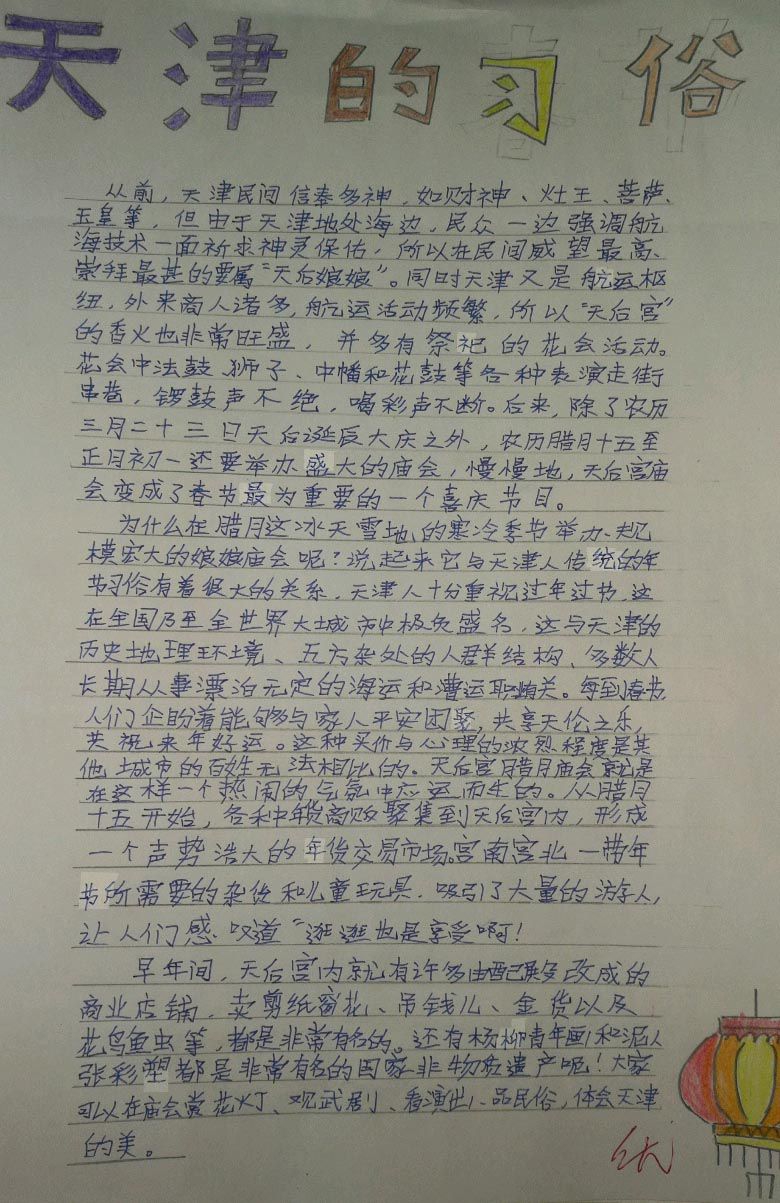 天津的习俗
从前，天津民间信奉多神，如财神、灶王、菩萨、
玉皇等，但由于天津地处海边，民众一边强调航
海技术一面祈求神灵保佑，所以在民间威望最高、
崇拜最甚的要属“天后娘娘”。同时天津又是航运枢
纽，外来商人诸多，航运活动频繁，所以“天后宫”
的香火也非常旺盛，并多有祭祀的花会活动。
花会中法鼓、狮子、中幡和花鼓等各种表演走街
串巷，锣鼓声不绝，喝彩声不断。后来，除了农历
三月二十三日天后诞辰大庆之外，农历腊月十五至
正月初一还要举办盛大的庙会，慢慢地，天后宫庙
会变成了春节最为重要的一个喜庆节目。
为什么在腊月这冰天雪地的寒冷季节举办规
模宏大的娘娘庙会呢？说起来它与天津人传统的年
节习俗有着很大的关系，天津人十分重视过年过节，这
在全国乃至全世界大城市中极负盛名，这与天津的
历史地理环境、五方杂处的人群结构、多数人
长期从事漂泊无定的海运和漕运职相关。每到春节
人们企盼着能够与家人平安团聚，共享天伦之乐，
共祝来年好运。这种买价与心理的浓烈程度是其
他城市的百姓无法相比的。天后宫腊月庙会就是
在这样一个热闹的气氛中应运而生的。从腊月
十五开始，各种年货商贩聚集到天后宫内，形成
一个声势浩大的年货交易市场。宫南宫北一带年
节所需要的杂货和儿童玩具，吸引了大量的游人，
让人们感叹道“逛逛也是享受啊！
早年间，天后宫内就有许多由配殿改成的
商业店铺，卖剪纸窗花、吊钱儿、金货以及
花鸟鱼虫等，都是非常有名的。还有杨柳青年画和泥人
张彩塑都是非常有名的国家非物质遗产呢！大家
可以在庙会赏花灯、观武剧、看演出、品民俗，体会天津
的美。
优